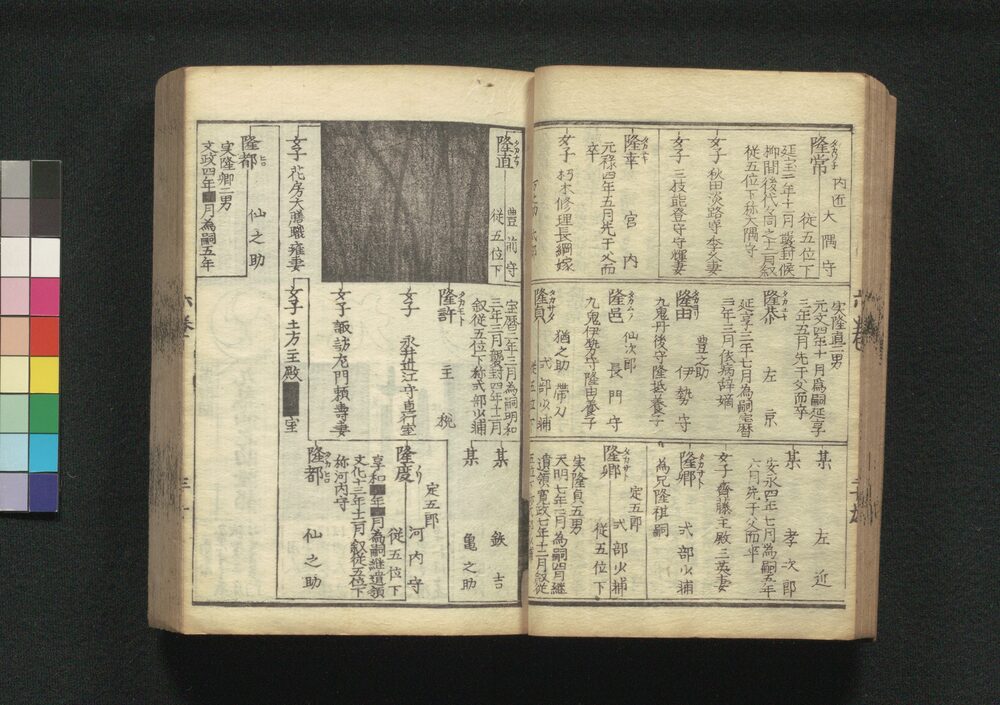 隆常 内匠 大隅守
従五位下
延宝二年十二月襲封候
柳間後代父同之十二月叙
従五位下称大隅守
女子 秋田淡路守季久妻
女子 三枝能登守守輝妻
隆幸 宮内
元禄四年五月先于父而
卒
女子 朽木修理長綱嫁
実隆直二男
元文四年十月為嗣延享
三年五月先于父而卒
隆恭 左京
延享三年七月為嗣宝暦
三年三月依病辞嫡
豊之助
隆由 伊勢守
九鬼丹後守隆抵養子
仙次郎
隆邑 長門守
九鬼伊勢守隆由養子
猶之助 帯刀
隆貞 式部少輔
従五位下
某 左近
某 孝次郎
安永四年七月為嗣五年
六月先于父而卒
女子 齋藤主殿三英妻
隆郷 式部少輔
為兄隆祺嗣
定五郎
隆郷 式部少輔
従五位下
実隆貞五男
天明七年二月為嗣四月継
遺領寛政七年十二月叙従
隆直 豊前守
従五位下
女子 花房大膳職雍妻
隆都 仙之助
実隆郷二男
文政四年 月為嗣五年
宝暦三年三月為嗣明和
三年三月襲封四年十二月
叙従五位下称式部少輔
隆許 主税
女子 永井近江守直行室
女子 諏訪左門頼寿妻
女子 土方主殿 室
某 鉄吉
某 亀之助
定五郎
隆度 河内守
従五位下
享和 年 月為嗣継遺領
文化十三年十二月叙従五位下
称河内守
隆都 仙之助